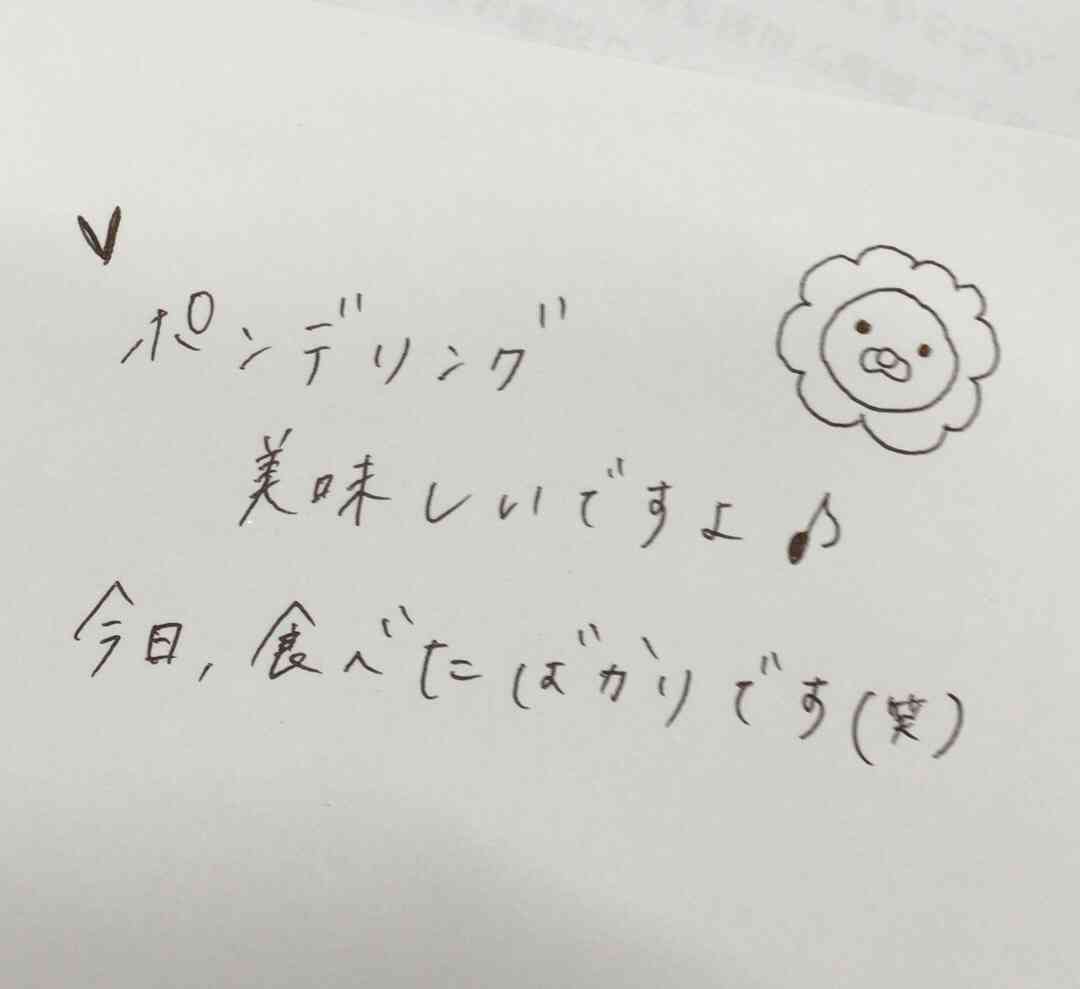 ポンデリング
美味しいですよ♪
今日,食べたばかりです(笑)